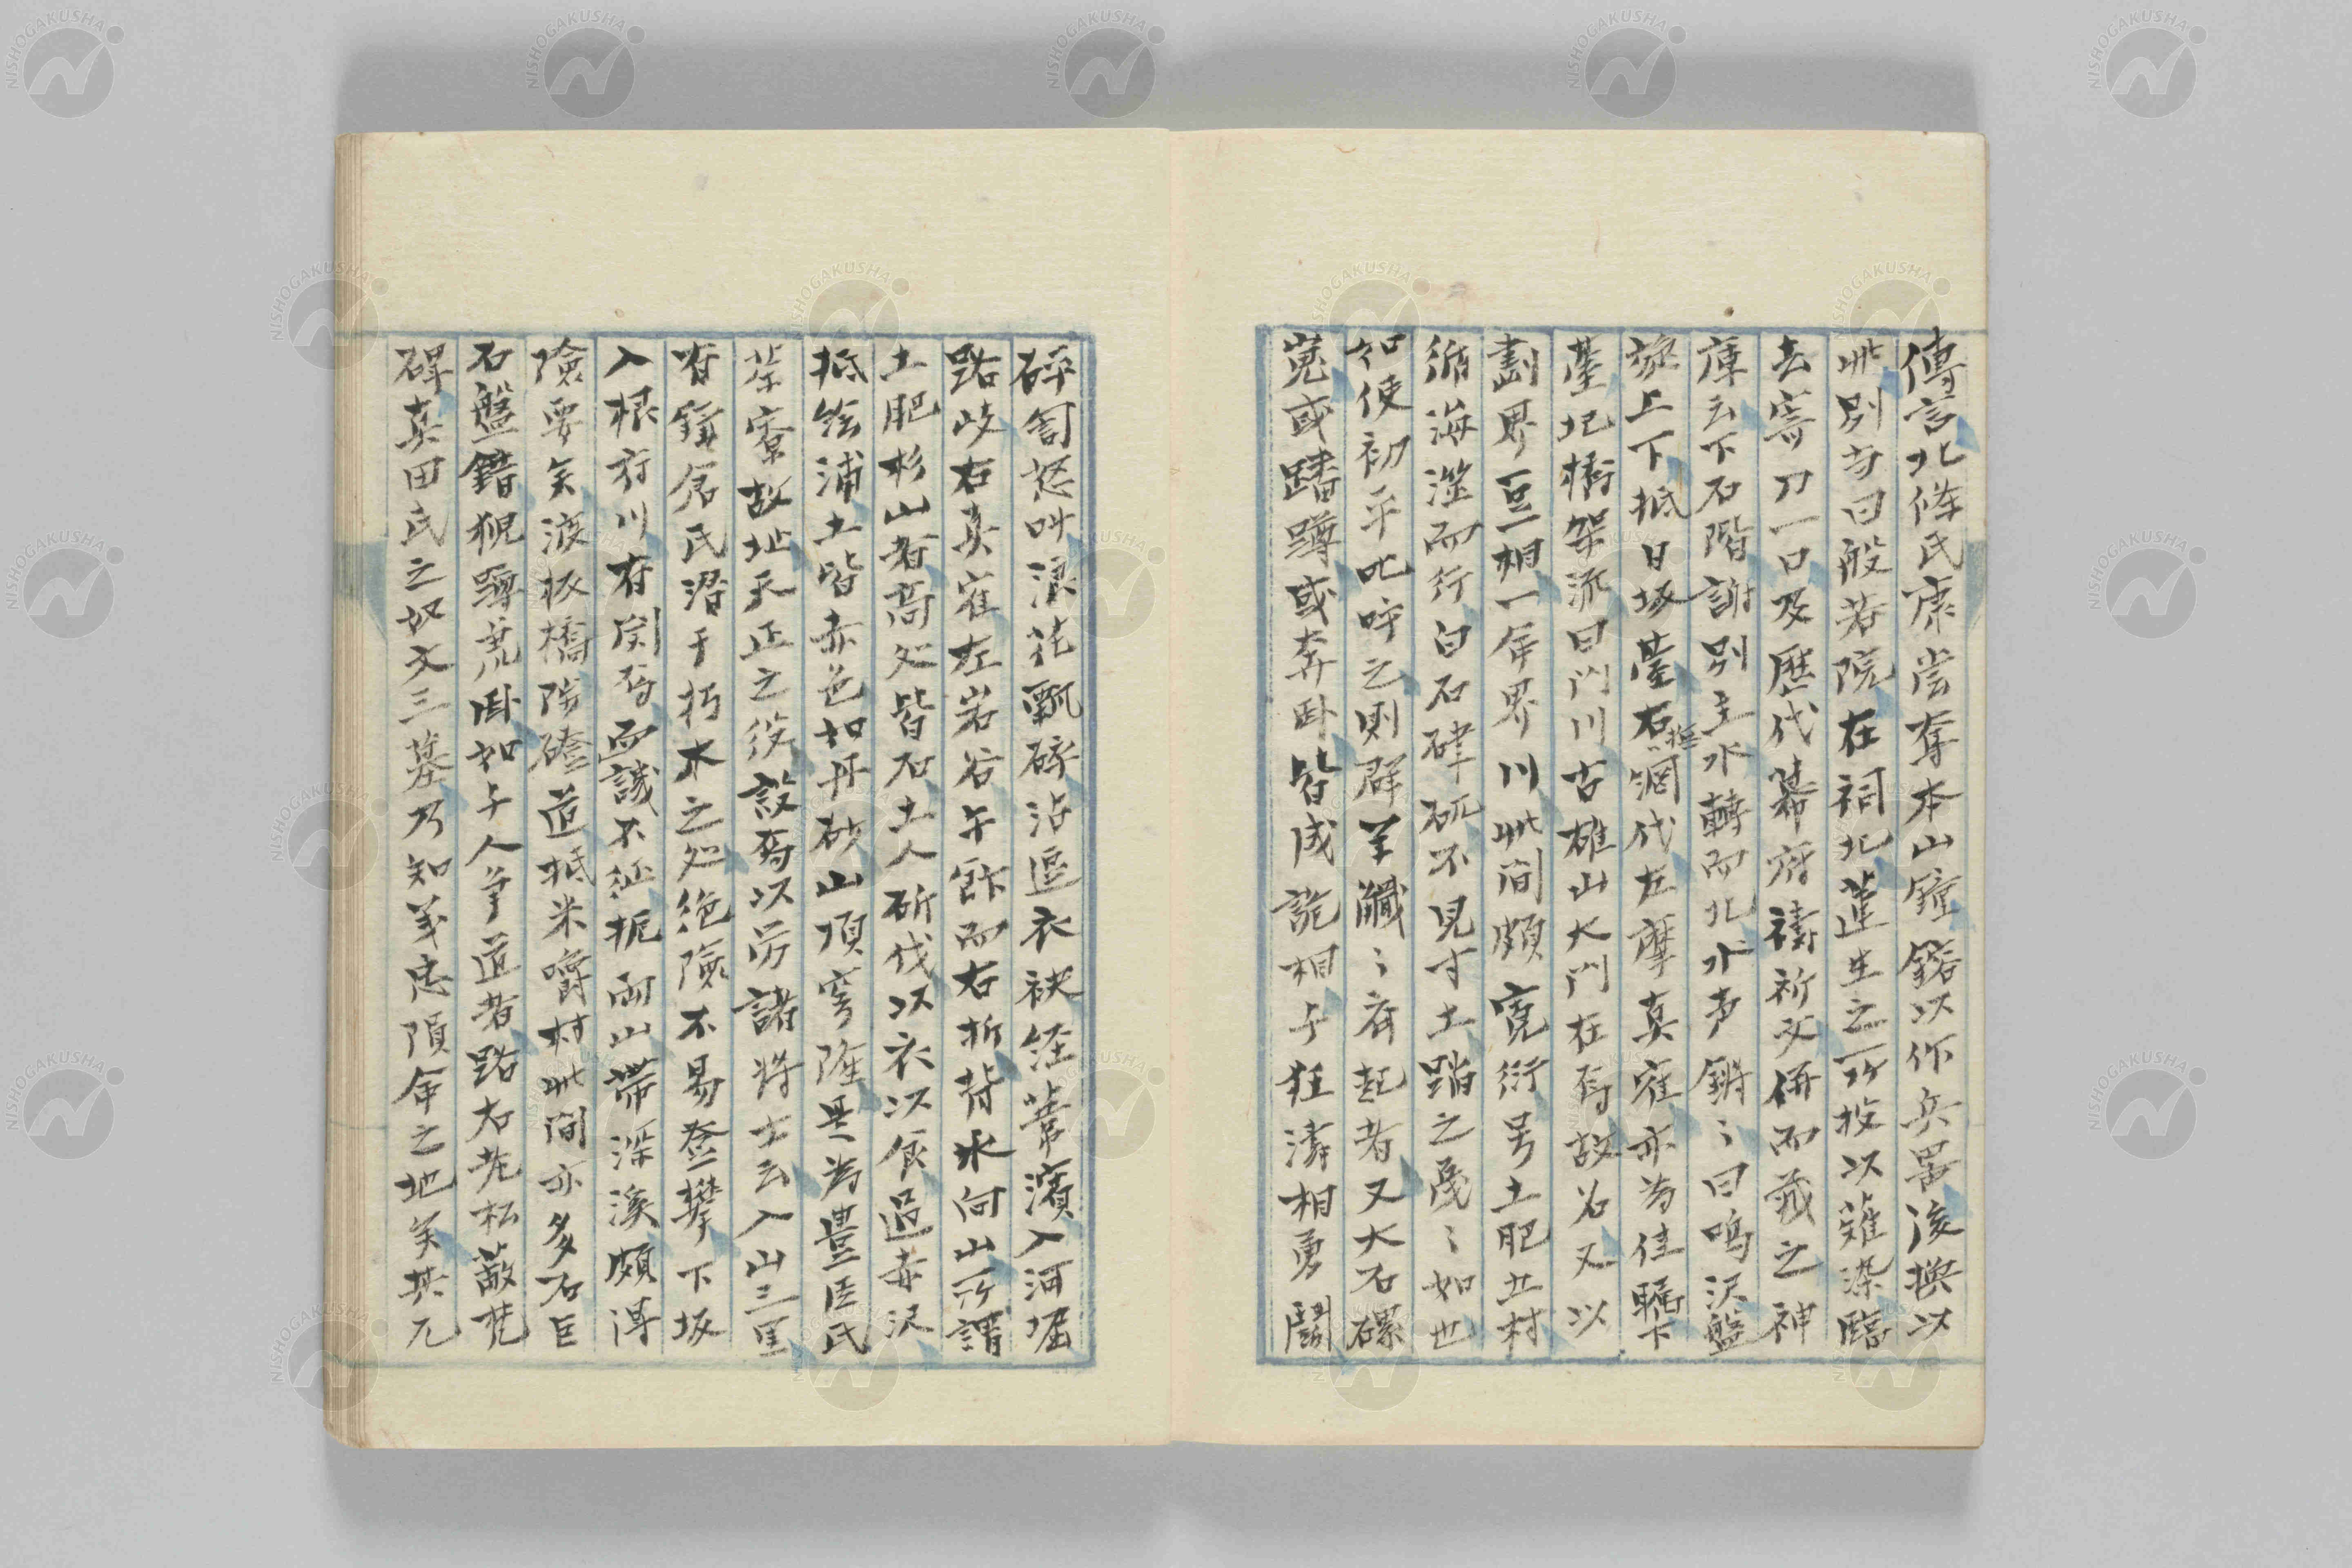 傳言北條氏康嘗奪本山鐘鋳以作兵器後換以
此別当曰般若院在祠北蓮生之所投以薙染臨
去寄刀一口及歴代幕府禱祈文併而蔵之神
庫云下石階謝別主水轉而北水声鏘〻曰鳴沢盤
旋上下抵日坂臺右擁網代左摩真寉亦為佳矚下
臺圯橋架流曰門川古雄山大門在焉故名又以
劃界豆相一年界川此間頗寛衍号土肥五村
循海澨而行白石硉矹不見寸土踏之戞〻如也
如使初平叱呼之則群羊濈〻齐起者又大石磥
嵬或蹯蹲或奔臥皆成詭相与狂濤相勇鬪
砕訇怒叫浪花飄砕沾這衣袂経葦濱入河堀
路岐右真寉左岩谷午飰而右折背水向山所謂
土肥杉山者高処皆石土人斫伐以衣以食過赤沢
抵绘浦土皆赤色如丹砂山頂穹隆是為豊臣氏
茶寮故址天正之役設寿以労諸将士云入山三里
有鎌倉氏潜于朽木之処绝險不易登攀下坂
入根府川有関焉而譏不征扼両山帶深溪頗淂
險要矣渡板橋陟磴道抵米嚼村此間亦多石巨
石盤錯猊蹲虎臥如与人争道者路右老松蔽芘
碑真田氏之奴文三墓乃知義忠隕命之地矣其兀